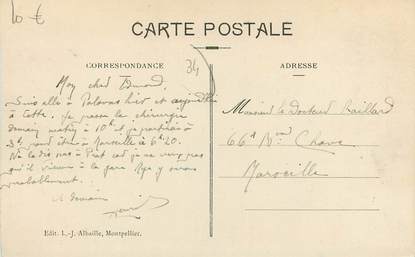 10 €
CARTE POSTALE
CORRESPONDANCE
ADRESSE
34
Mon cher
Suis allé à Palavas hier et aujourd'hui
à Cette. Je passe la chirurgie
demain matin à 10h et je partirai à
3h pour être à Marseille à 6h20.
Ne le dis pas à car je ne veux pas
qu'il vienne à la gare
A demain
Monsieur le Docteur
66A Bvard Chave
Marseille
Edit. L.-J. Albaille, Montpellier.